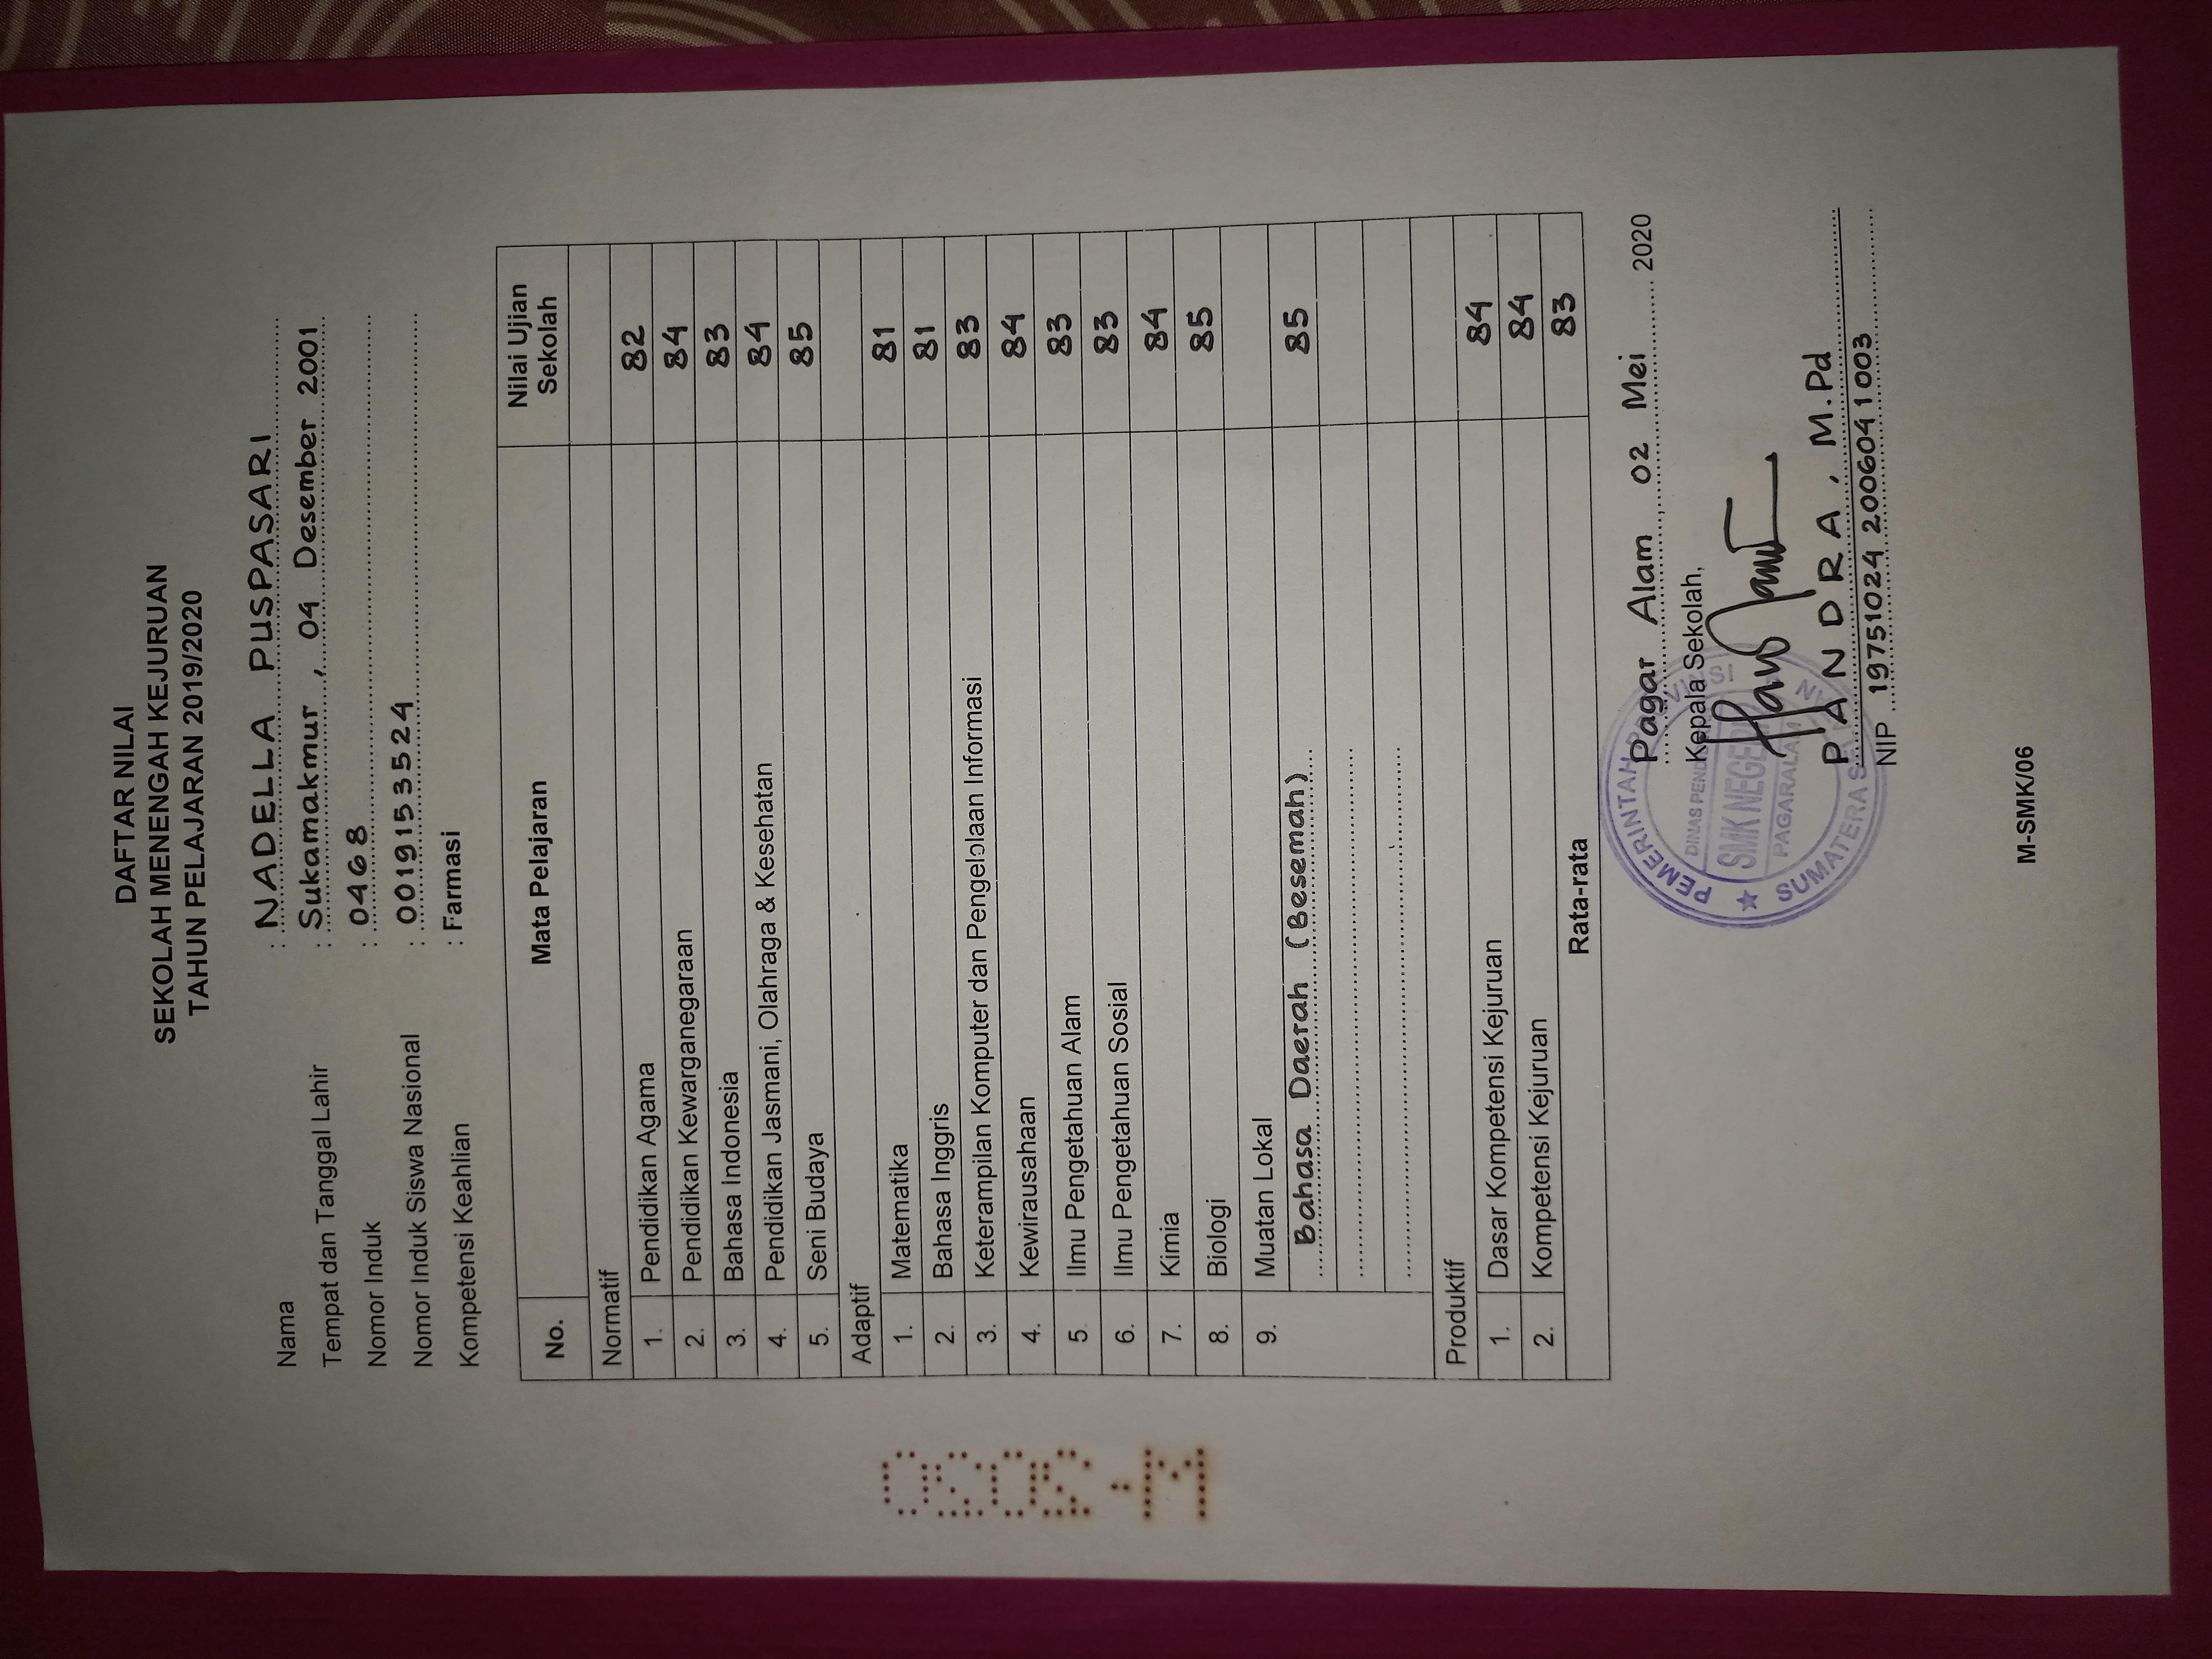 DAFTAR NILAI
SEKOLAH MENENGAH KEJURUAN
TAHUN PELAJARAN 2019/2020
Nama : NADELLA PUSPASARI
Tempat dan Tanggal Lahir : Sukamakmur, 04 Desember 2001
Nomor Induk : 0468
Nomor Induk Siswa Nasional : 0019153524
Kompetensi Keahlian : Farmasi
No. Mata Pelajaran Nilai Ujian Sekolah
Normatif
1. Pendidikan Agama 82
2. Pendidikan Kewarganegaraan 84
3. Bahasa Indonesia 83
4. Pendidikan Jasmani, Olahraga & Kesehatan 84
5. Seni Budaya 85
Adaptif
1. Matematika 81
2. Bahasa Inggris 81
3. Keterampilan Komputer dan Pengelolaan Informasi 83
4. Kewirausahaan 84
5. Ilmu Pengetahuan Alam 83
6. Ilmu Pengetahuan Sosial 83
7. Kimia 84
8. Biologi 85
9. Muatan Lokal
Bahasa Daerah (Besemah) 85
Produktif
1. Dasar Kompetensi Kejuruan 84
2. Kompetensi Kejuruan 84
Rata-rata 83
Pagar Alam, 02 Mei 2020
Kepala Sekolah,
PEMERINTAH PROVINSI
SMK NEGERI
PAGARALAM
SUMATERA SELATAN
PANDRA, M.Pd
NIP 19751024 200604 1 003
M-SMK/06